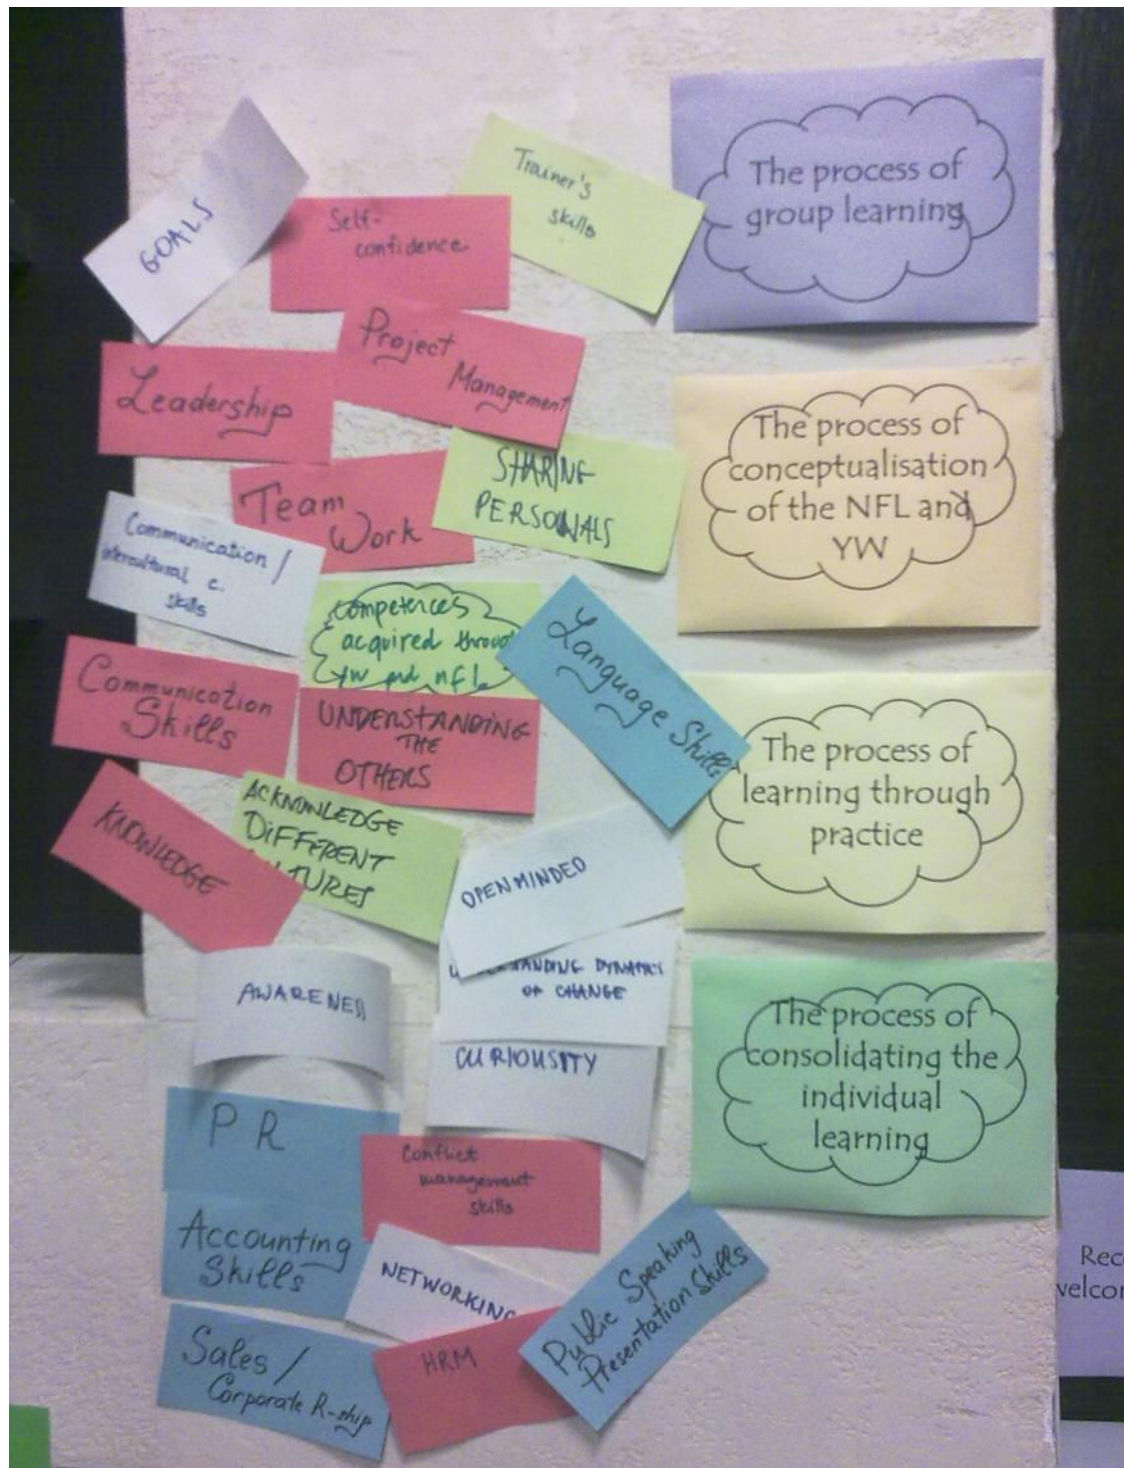 GOALS
Self-
confidence
Trainer's
skills
Project
Management
Leadership
SHARING
PERSONALS
Team
Work
Communication /
intercultural c.
skills
competences
acquired
yw and nfl
Language Skills
Communication
Skills
UNDERSTANDING
THE
OTHERS
KNOWLEDGE
ACKNOWLEDGE
DIFFERENT
OPENMINDED
DYNAMICS
OF CHANGE
AWARENESS
CURIOUSITY
PR
Conflict
management
skills
Accounting
Skills
NETWORKING
Public Speaking
Presentation Skills
Sales /
Corporate R-ship
HRM
The process of
group learning
The process of
conceptualisation
of the NFL and
YW
The process of
learning through
practice
The process of
consolidating the
individual
learning